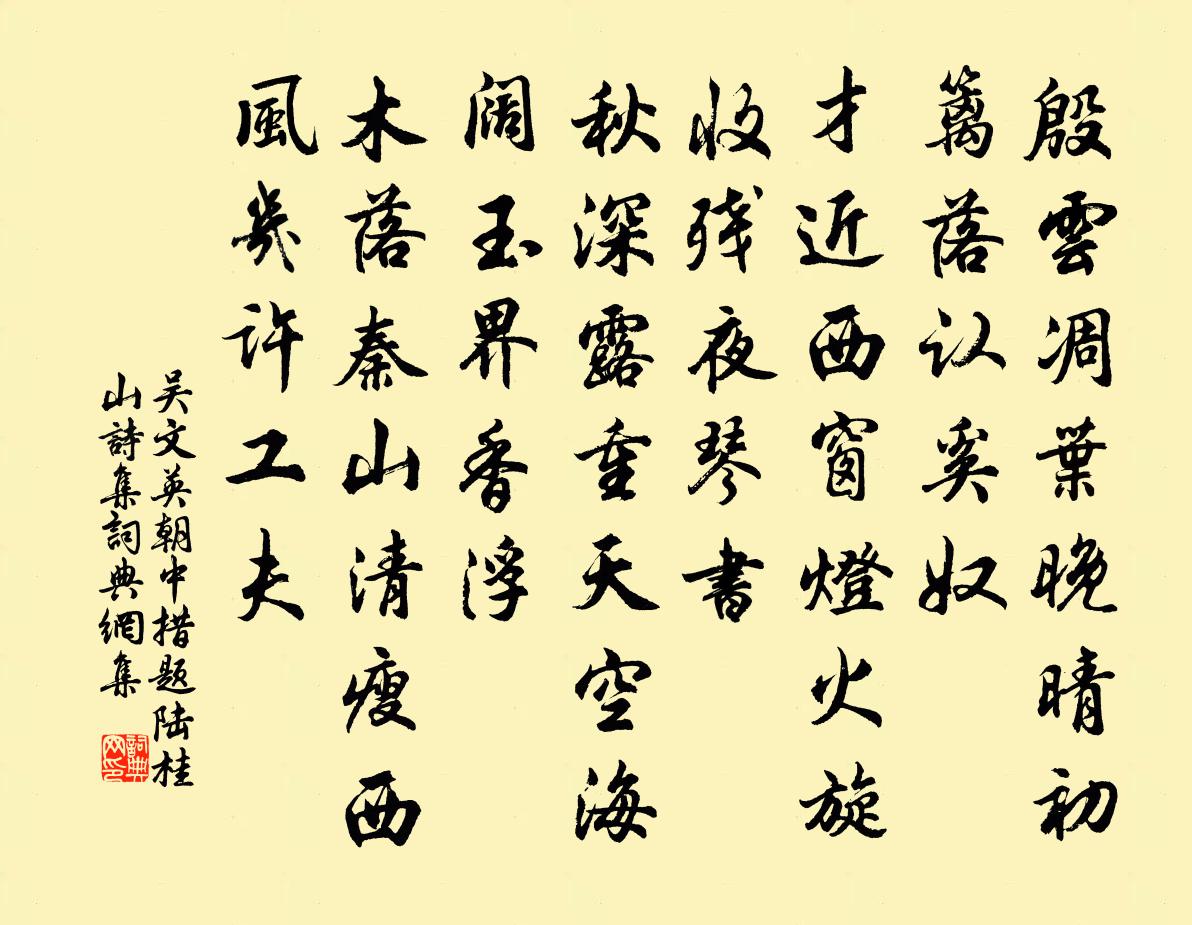 殷雲凋葉晚晴初
籬落认奚奴
才近西窗燈火旋
收残夜琴書
秋深露重天空海
阔玉界香浮
木落秦山清瘦西
風幾许工夫
吴文英朝中措题陆桂
山詩集詞典網集
詞典網印